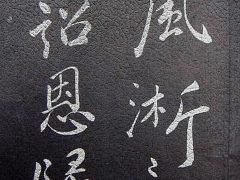 風淅
詔恩